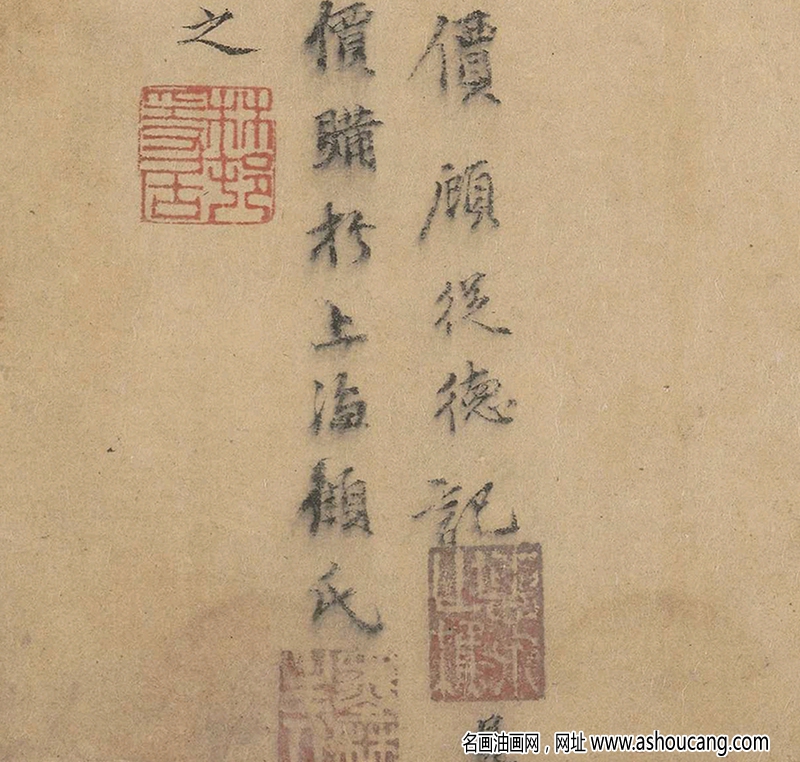 價顧從德記
價購於上海顧氏
之
名画油画网，网址 www.ashoucang.com